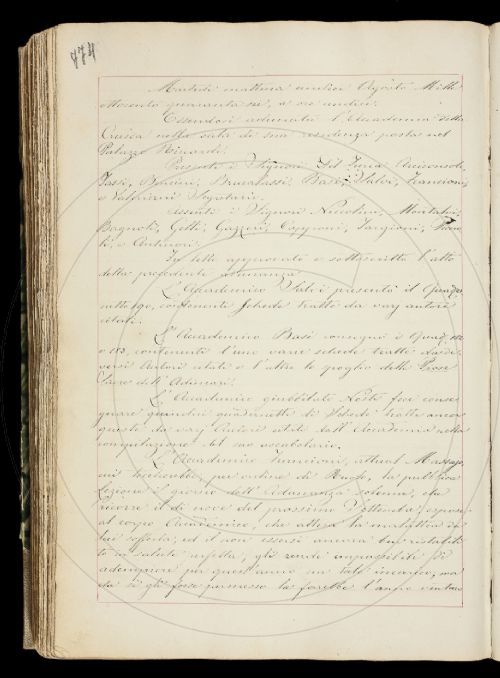 474
Martedì mattina undici Agosto Mille
ottocento quaranta sei, a ore undici.
Essendosi adunata l'Accademia della
Crusca nella sala di sua residenza posta nel
Palazzo Riccardi.
Presenti i Signori Del Furia Arciconsolo,
Tassi, Bencini, Brucalassi, Basi, Salvi, Francioni,
e Valeriani Segretario.
Assenti i Signori Niccolini, Montalvi,
Bagnoli, Gelli, Gazzeri, Capponi, Targioni,
e
Fu letto approvato e sottoscritto l'atto
della precedente adunanza.
L'Accademico Salvi presentò il
contenente Schede tratte da varj autori
citati.
L'Accademico Basi consegnò i
e 183, contenenti l'uno varie schede tratte da di-
versi Autori citati e l'altro lo spoglio delle Prose
L'Accademico giubbilato fece conse-
gnare quindici quadernetti di Schede tratte ancor
queste da varj Autori citati dall'Accademia nella
compilazione del suo vocabolario.
L'Accademico Francioni, attual Massajo,
cui incombe, per ordine di Ruolo, la pubblica
lezione il giorno dell'Adunanza solenne, che
ricorre il dì nove del prossimo Settembre, espose
al corpo Accademico, che attesa la malattia da
lui sofferta, ed il non essersi ancora ben ristabili-
to in salute perfetta, gli rende impossibile di
adempiere per quest'anno un tale incarico, ma
che se gli fosse permesso lo farebbe l'anno venturo